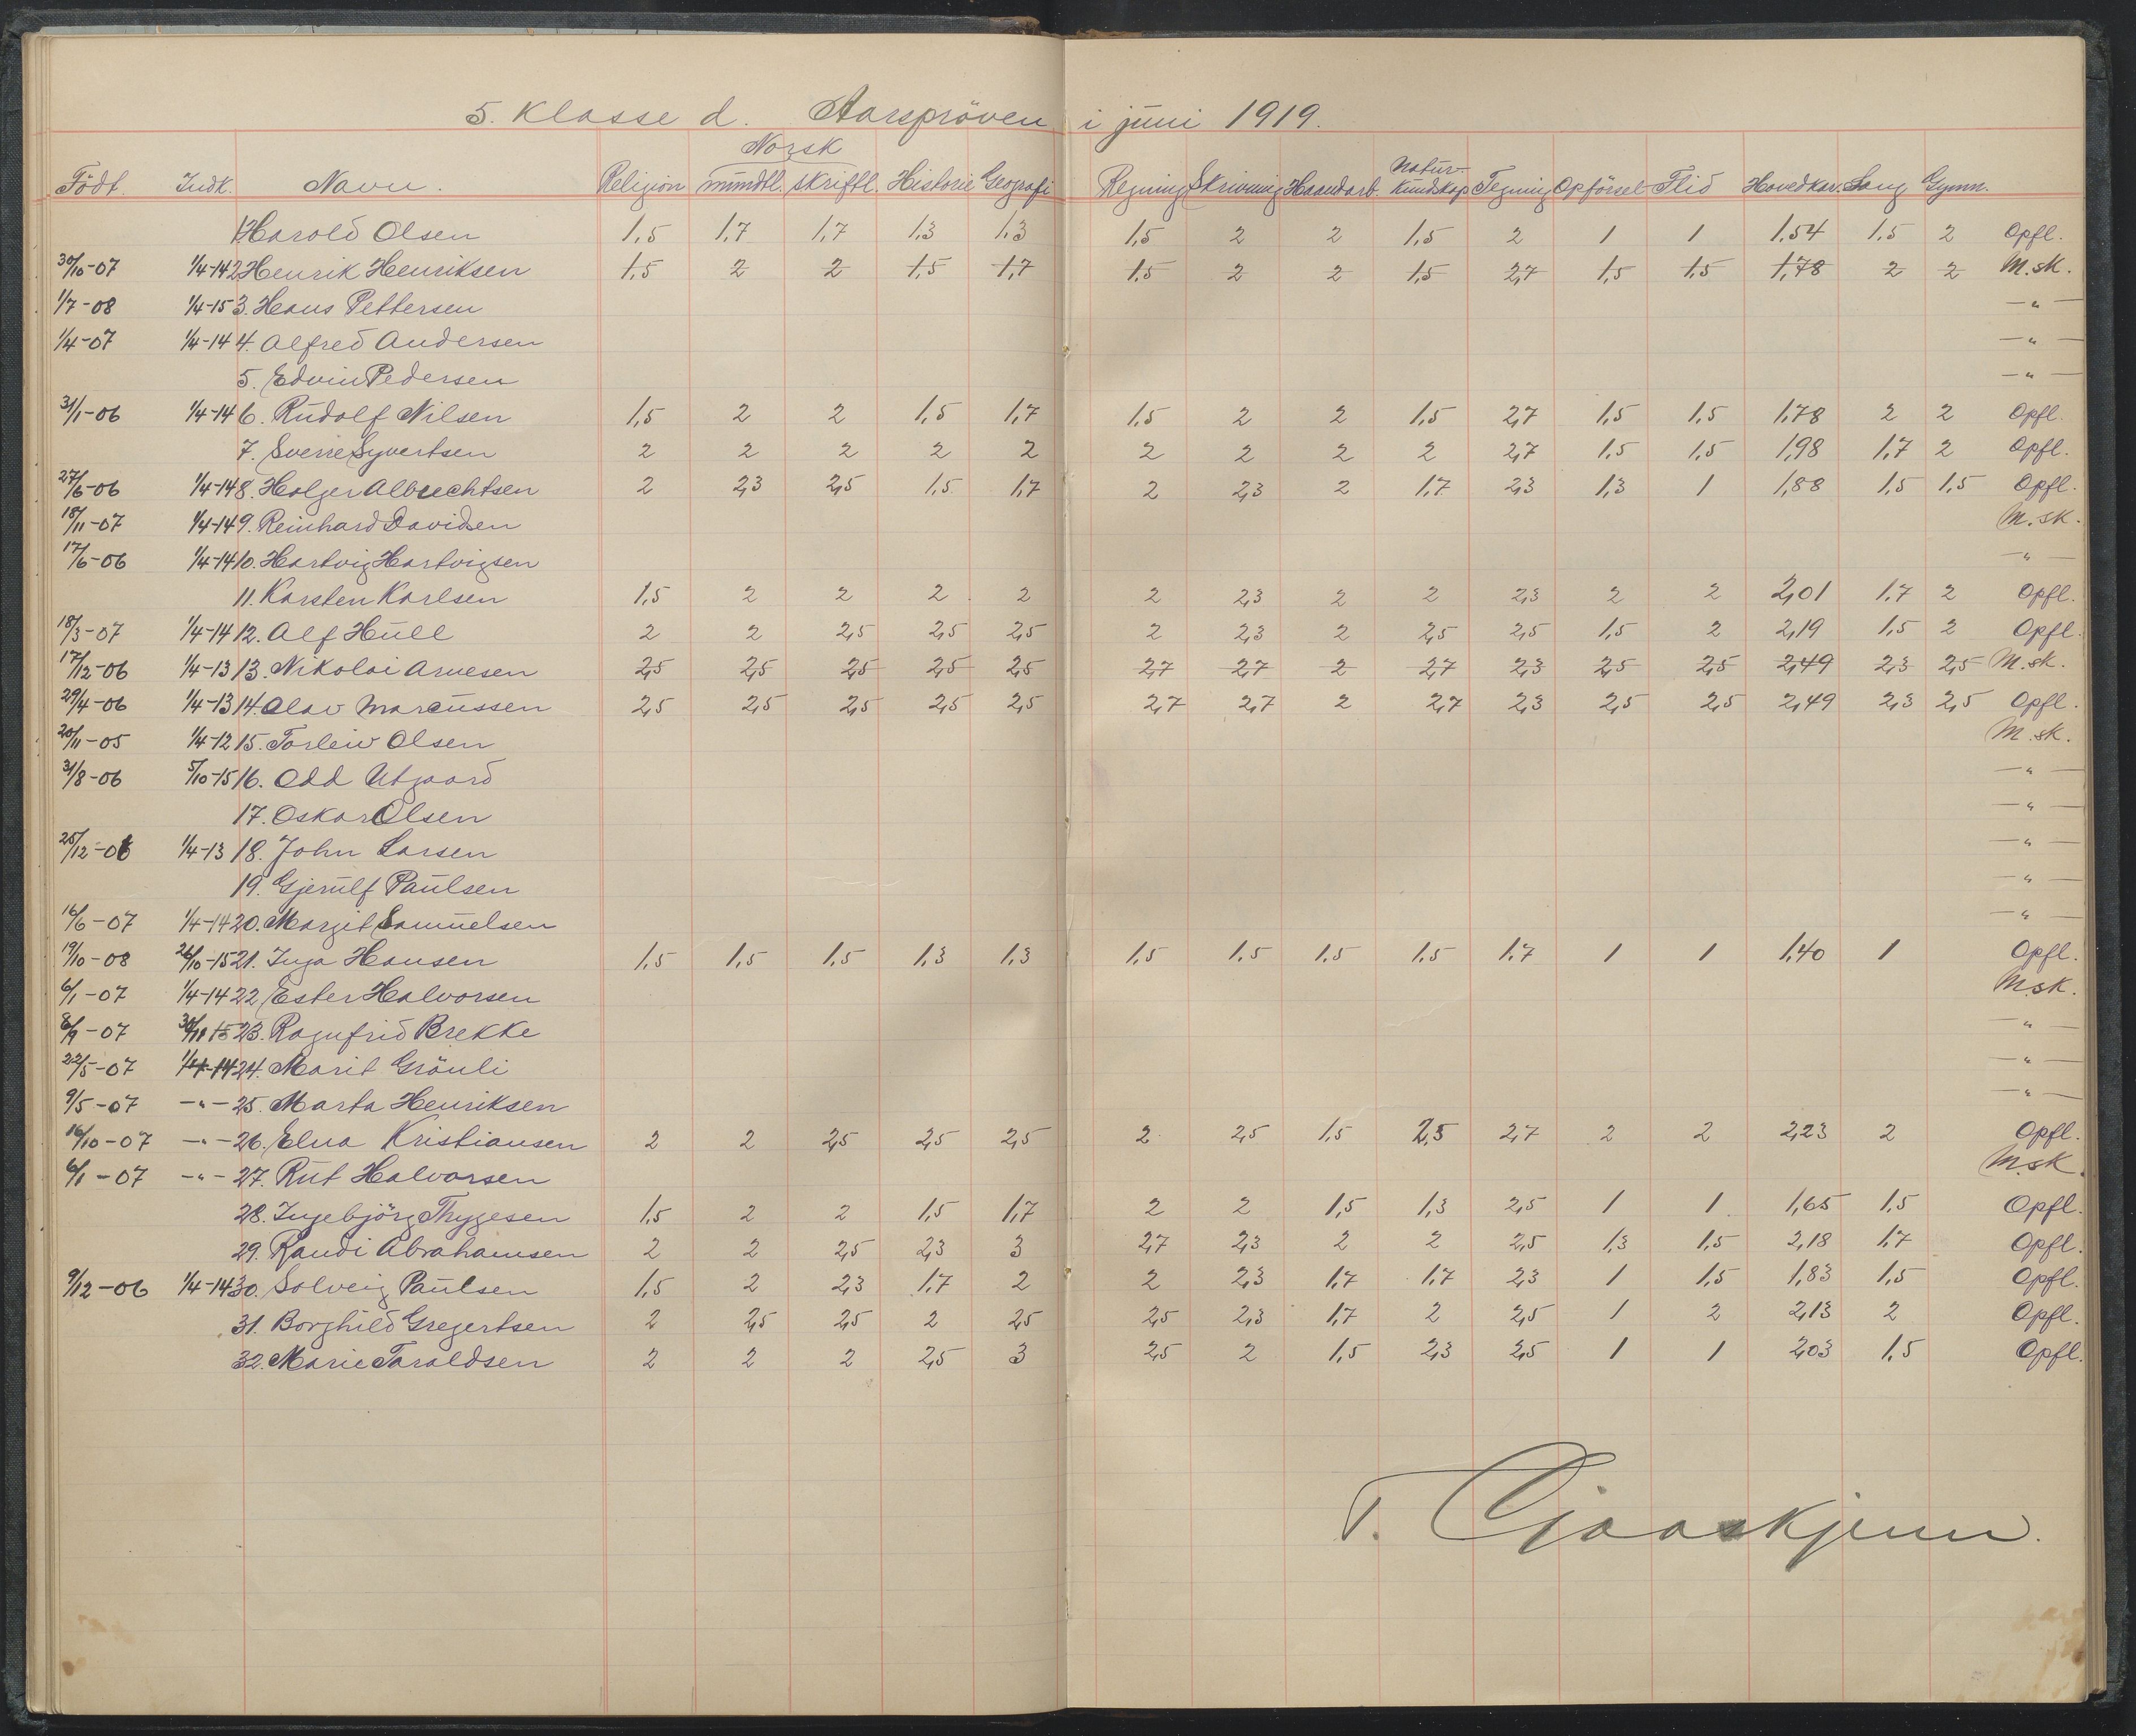 5. Klasse d. Aarspröven i juni 1919.
Norsk
Natur-
Födt. Indk. Navn. Religion mündtl. skriftl. Historie Geografi Regning Skrivning Haandarb. kundskap Tegning Opförsel Flid Hovedkar. Sang Gymn.
1. Harald Olsen 1,5 1,7 1,7 1,3 1,3 1,5 2 2 1,5 2 1 1 1,54 1,5 2 Opfl.
30/10-07 1/4-14 2 Henrik Henriksen 1,5 2 2 1,5 1,7 1,5 2 2 1,5 2,7 1,5 1,5 1,78 2 2 M.sk.
1/7-08 1/4-15 3. Hans Pettersen -"-
1/4-07 1/4-14 4. Alfred Andersen -"-
5. Edvin Pedersen -"-
31/1-06 1/4-14 6. Rudolf Nilsen 1,5 2 2 1,5 1,7 1,5 2 2 1,5 2,7 1,5 1,5 1,78 2 2 Opfl.
7. Sverre Syvertsen 2 2 2 2 2 2 2 2 2 2,7 1,5 1,5 1,98 1,7 2 Opfl.
27/6-06 1/4-14 8. Holger Albrechtsen 2 2,3 2,5 1,5 1,7 2 2,3 2 1,7 2,3 1,3 1 1,88 1,5 1,5 Opfl.
18/11-07 1/4-14 9. Reinhard Davidsen M.sk.
17/6-06 1/4-14 10. Hartvig Hartvigsen -"-
11. Karsten Karlsen 1,5 2 2 2 2 2 2,3 2 2 2,3 2 2 2,01 1,7 2 Opfl.
18/3-07 1/4-14 12. Alf Hüll 2 2 2,5 2,5 2,5 2 2,3 2 2,5 2,5 1,5 2 2,19 1,5 2 Opfl.
17/12-06 1/4-13 13. Nikolai Arnesen 2,5 2,5 2,5 2,5 2,5 2,7 2,7 2 2,7 2,3 2,5 2,5 2,49 2,3 2,5 M.sk.
29/4-06 1/4-13 14. Olav Marcussen 2,5 2,5 2,5 2,5 2,5 2,7 2,7 2 2,7 2,3 2,5 2,5 2,49 2,3 2,5 Opfl.
20/11-05 1/4-12 15. Torleiv Olsen M.sk.
31/8-06 5/10-15 16. Odd Utgaard -"-
17. Oskar Olsen -"-
25/12-06 1/4-13 18. John Larsen -"-
19. Gjerulf Paulsen -"-
16/6-07 1/4-14 20. Margit Samuelsen -"-
19/10-08 26/10-15 21. Inga Hansen 1,5 1,5 1,5 1,3 1,3 1,5 1,5 1,5 1,5 1,7 1 1 1,40 1 Opfl.
6/1-07 1/4-14 22 Ester Halvorsen M.sk.
8/9-07 15 23. Ragnfrid Brekke -"-
22/5-07 1/4-14 24. Marit Grönli -"-
9/5-07 -"- 25. Marta Henriksen -"-
16/10-07 -"- 26. Elna Kristiansen 2 2 2,5 2,5 2,5 2 2,5 1,5 2,5 2,7 2 2 2,23 2 Opfl.
6/1-07 -"- 27. Rut Halvorsen M.sk.
28. Ingebjörg Thygesen 1,5 2 2 1,5 1,7 2 2 1,5 1,3 2,5 1 1 1,65 1,5 Opfl.
29. Randi Abrahamsen 2 2 2,5 2,3 3 2,7 2,3 2 2 2,5 1,3 1,5 2,18 1,7 Opfl.
9/12-06 1/4-14 30. Solveig Paulsen 1,5 2 2,3 1,7 2 2 2,3 1,7 1,7 2,3 1 1,5 1,83 1,5 Opfl.
31. Borghild Gregertsen 2 2,5 2,5 2 2,5 2,5 2,3 1,7 2 2,5 1 2 2,13 2 Opfl.
32. Marie Taraldsen 2 2 2 2,5 3 2,5 2 1,5 2,3 2,5 1 1 2,03 1,5 Opfl.
T.